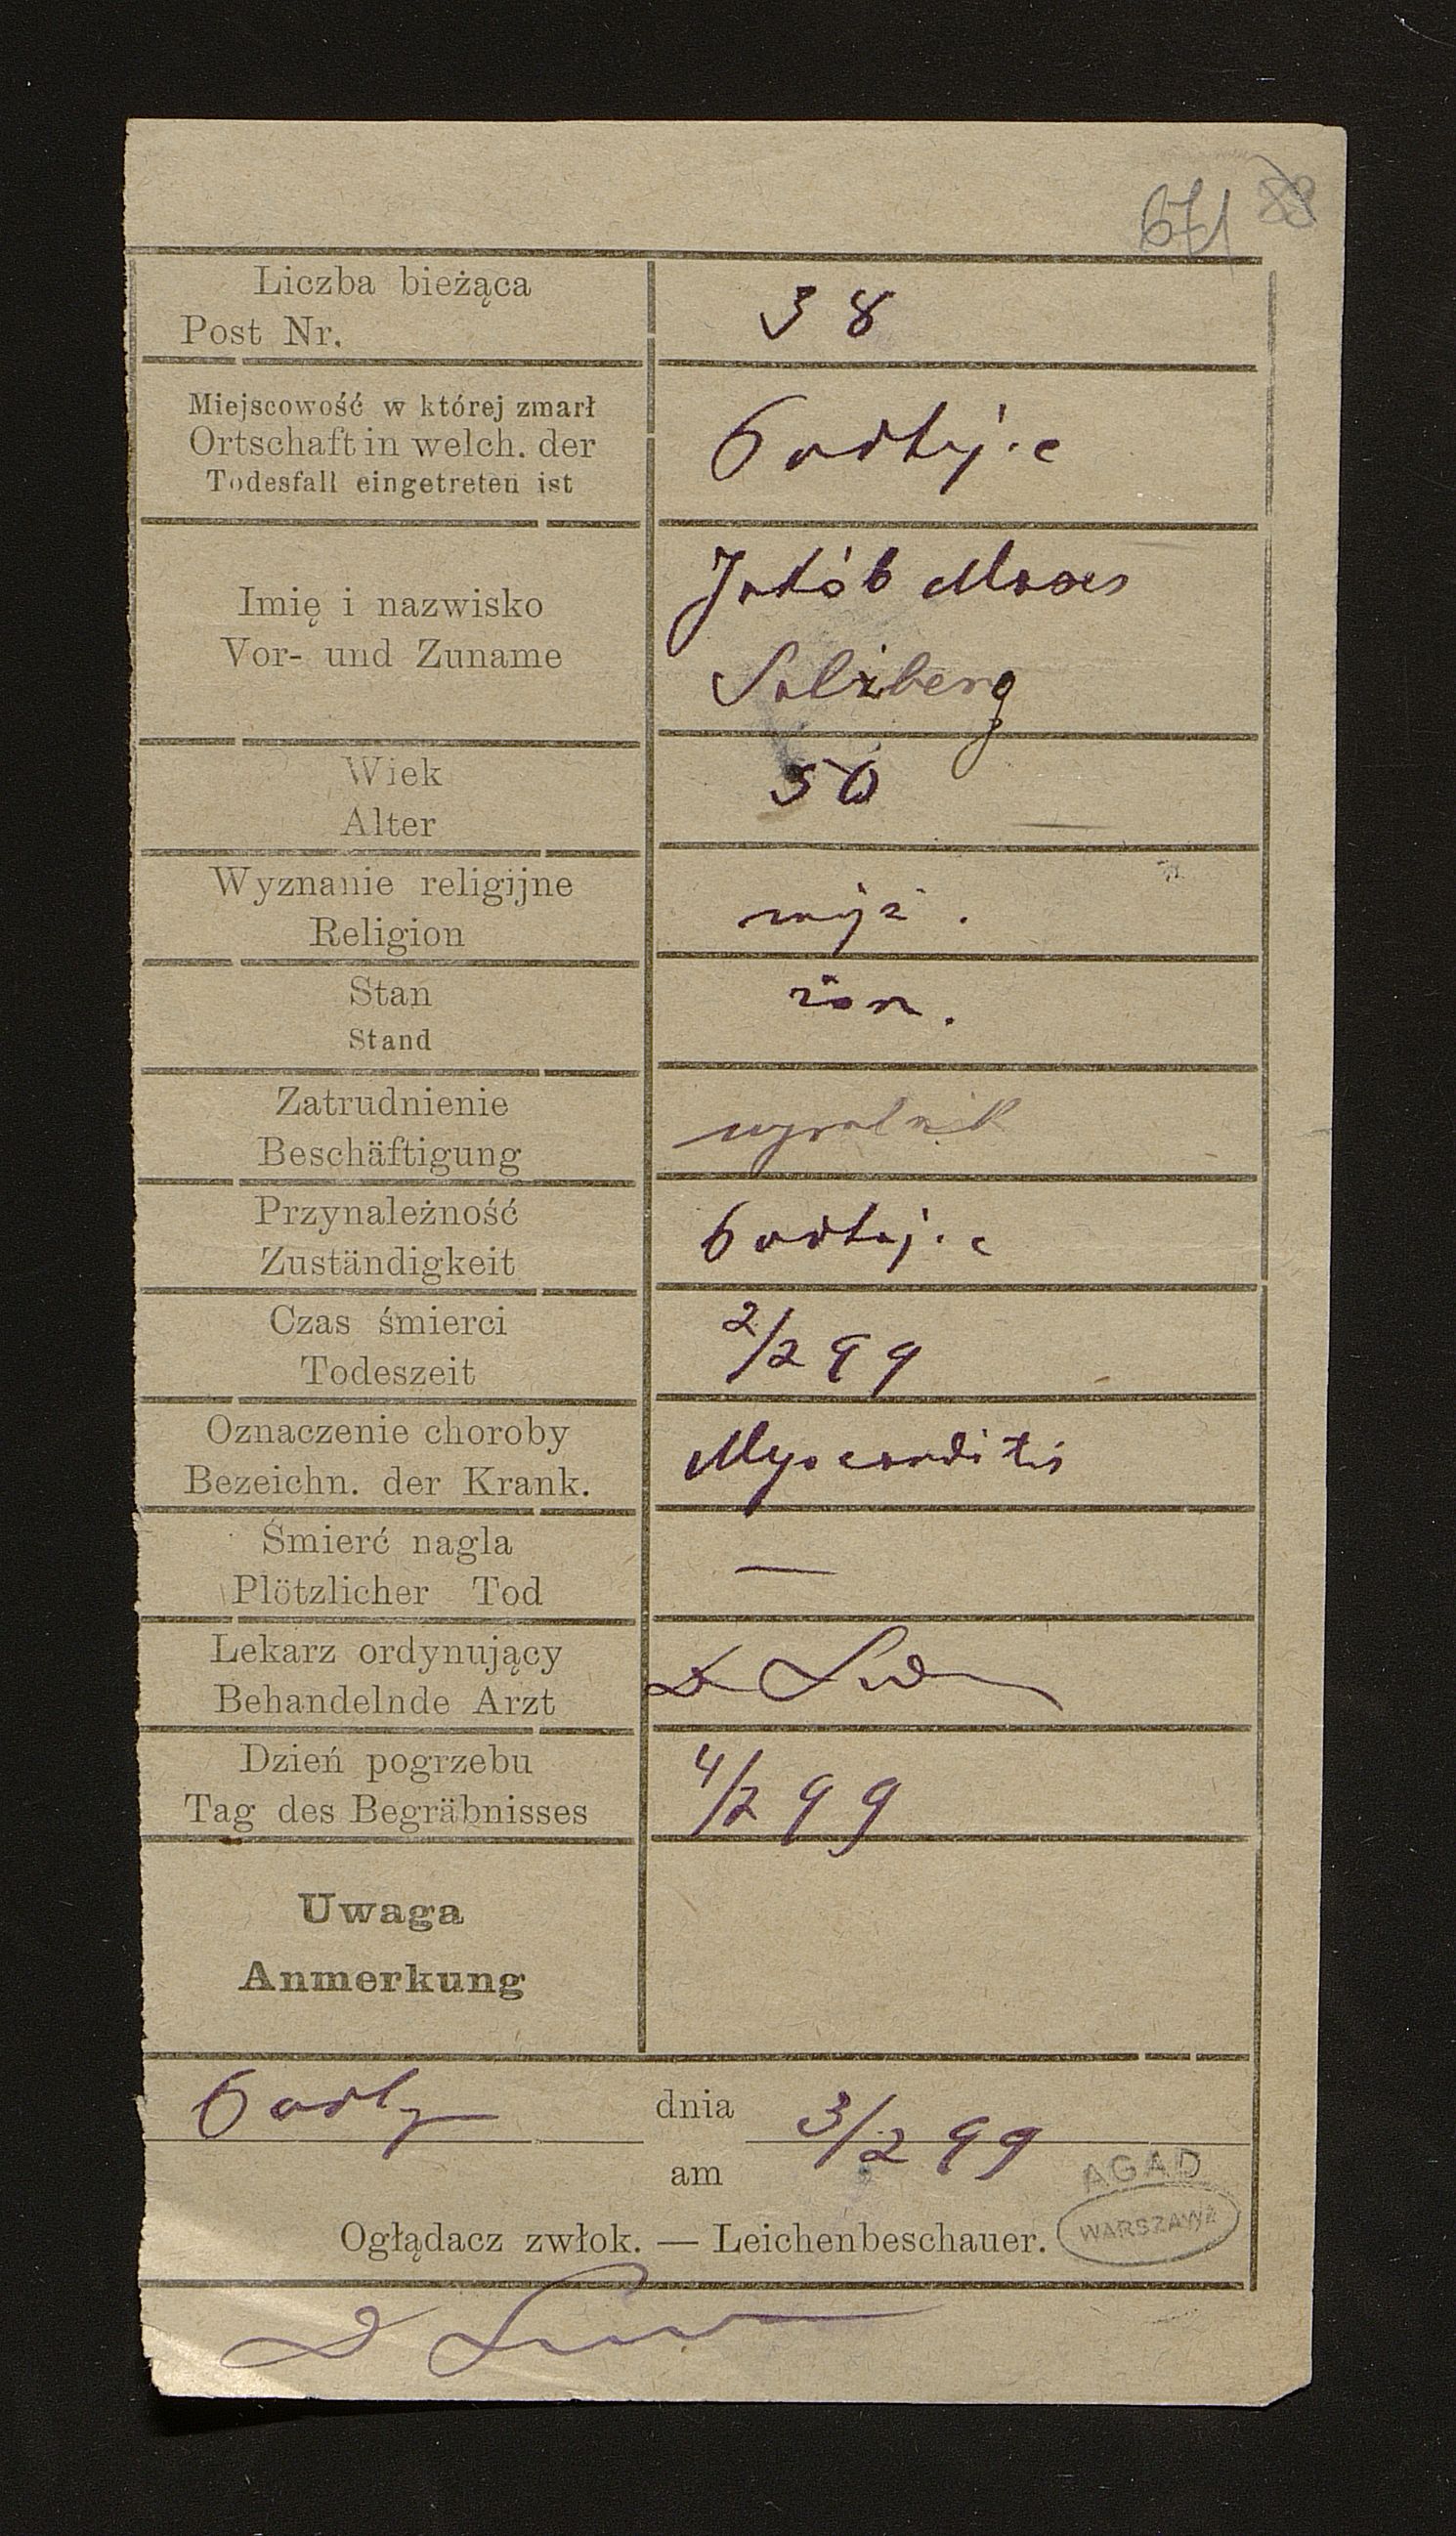 671 88
Liczba bieżąca
Post Nr.
38
Miejscowość w której zmarł
Ortschaft in welch. der
Todesfall eingetreten ist
Imię i nazwisko
Vor- und Zuname
Jakób Moses
Salzberg
Wiek
Alter
50
Wyznanie religijne
Religion
mojż.
Stan
Stand
żon.
Zatrudnienie
Beschäftigung
Przynależność
Zuständigkeit
Czas śmierci
Todeszeit
2/2 99
Oznaczenie choroby
Bezeichn. der Krank.
Myocarditis
Śmierć nagla
Plötzlicher Tod
—
Lekarz ordynujący
Behandelnde Arzt
Dzień pogrzebu
Tag des Begräbnisses
4/2 99
Uwaga
Anmerkung
dnia 3/2 99
am
AGAD
WARSZAWA
Ogłądacz zwłok. — Leichenbeschauer.